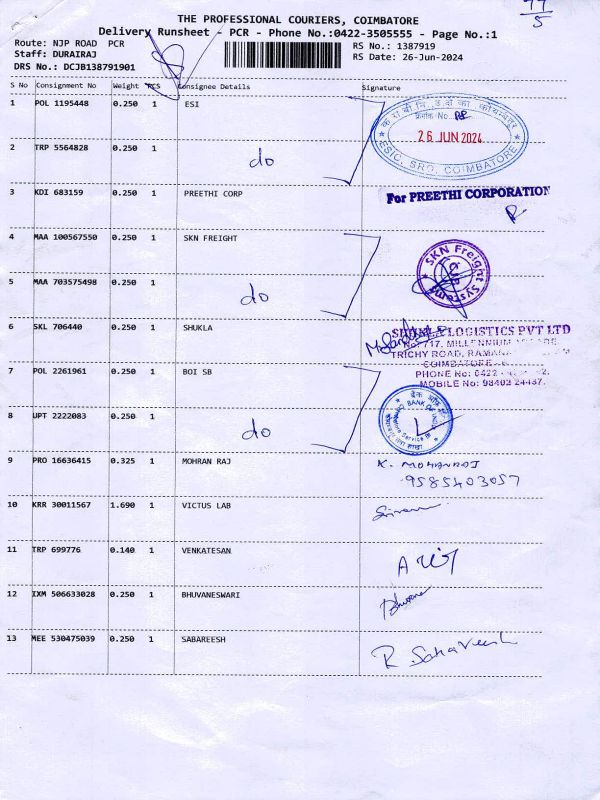 77
5
THE PROFESSIONAL COURIERS, COIMBATORE
Delivery Runsheet - PCR - Phone No.:0422-3505555 - Page No.:1
Route: NJP ROAD PCR
RS No.: 1387919
Staff: DURAIRAJ
RS Date: 26-Jun-2024
DRS No.: DCJB138791901
S No Consignment No Weight PCS Consignee Details Signature
1 POL 1195448 0.250 1 ESI
26 JUN 2024
ESIC, SRO, COIMBATORE
2 TRP 5564828 0.250 1 do
3 KDI 683159 0.250 1 PREETHI CORP
For PREETHI CORPORATION
4 MAA 100567550 0.250 1 SKN FREIGHT
SKN Freight Systems
5 MAA 703575498 0.250 1 do
6 SKL 706440 0.250 1 SHUKLA
SHUKLA LOGISTICS PVT LTD
No: 717, MILLENNIUM
TRICHY ROAD,
COIMBATORE
PHONE No: 0422
MOBILE No: 98402 24437.
7 POL 2261961 0.250 1 BOI SB
8 UPT 2222083 0.250 1 do
9 PRO 16636415 0.325 1 MOHRAN RAJ
K. MOHANRAJ
9585403057
10 KRR 30011567 1.690 1 VICTUS LAB
11 TRP 699776 0.140 1 VENKATESAN
12 IXM 506633028 0.250 1 BHUVANESWARI
13 MEE 530475039 0.250 1 SABAREESH